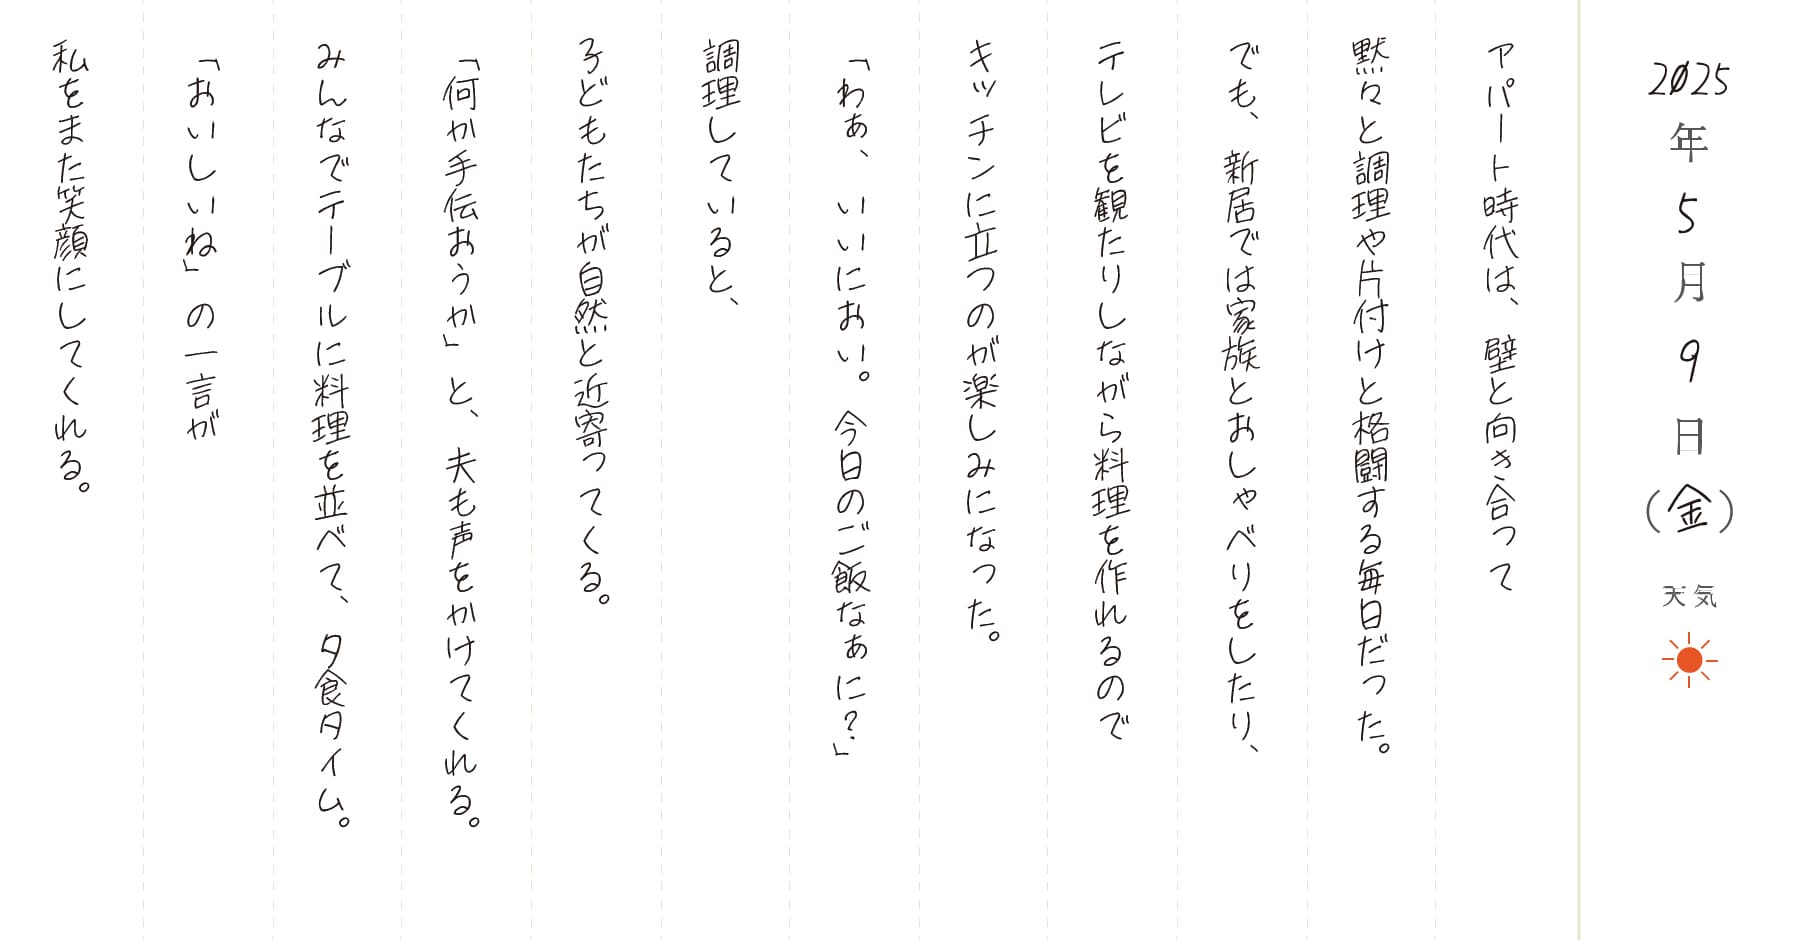 2025年5月9日(金)
天気
アパート時代は、壁と向き合って
黙々と調理や片付けと格闘する毎日だった。
でも、新居では家族とおしゃべりをしたり、
テレビを観たりしながら料理を作れるので
キッチンに立つのが楽しみになった。
「わぁ、いいにおい。今日のご飯なぁに?」
調理していると、
子どもたちが自然と近寄ってくる。
「何か手伝おうか」と、夫も声をかけてくれる。
みんなでテーブルに料理を並べて、夕食タイム。
「おいしいね」の一言が
私をまた笑顔にしてくれる。